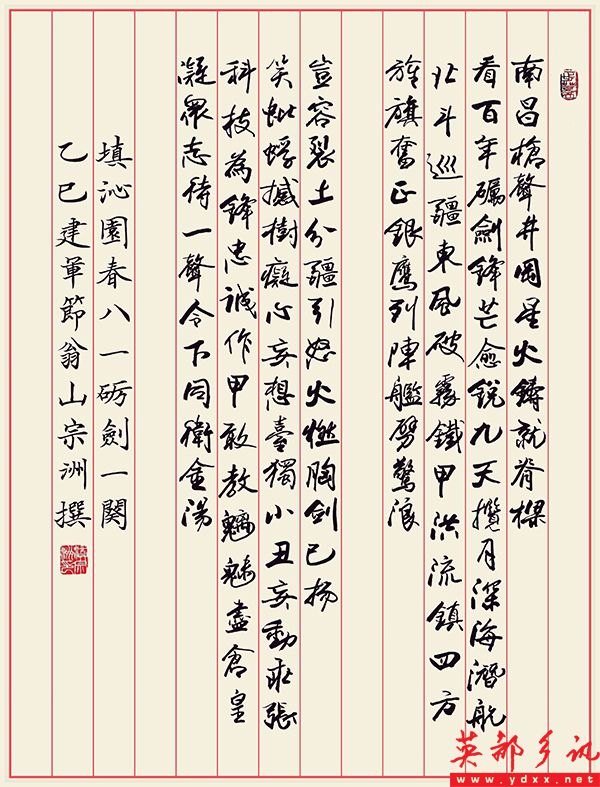 南昌槍聲井岡星火鑄就脊樑
看百年礪劍鋒芒愈銳九天攬月深海潛航
北斗巡疆東風破霧鐵甲洪流鎮四方
旌旗奮正銀鹰列陣艦劈驚浪
豈容裂土分疆引怒火燃胸劍已揚
笑蚍蜉撼樹癡心妄想臺獨小丑妄動乖張
科技為鋒忠誠作甲敢教魑魅盡倉皇
凝眾志待一聲令下同衛金湯
填沁園春八一砺劍一闋
乙巳建軍節翁山宗洲撰
英都乡讯
www.ydxx.net